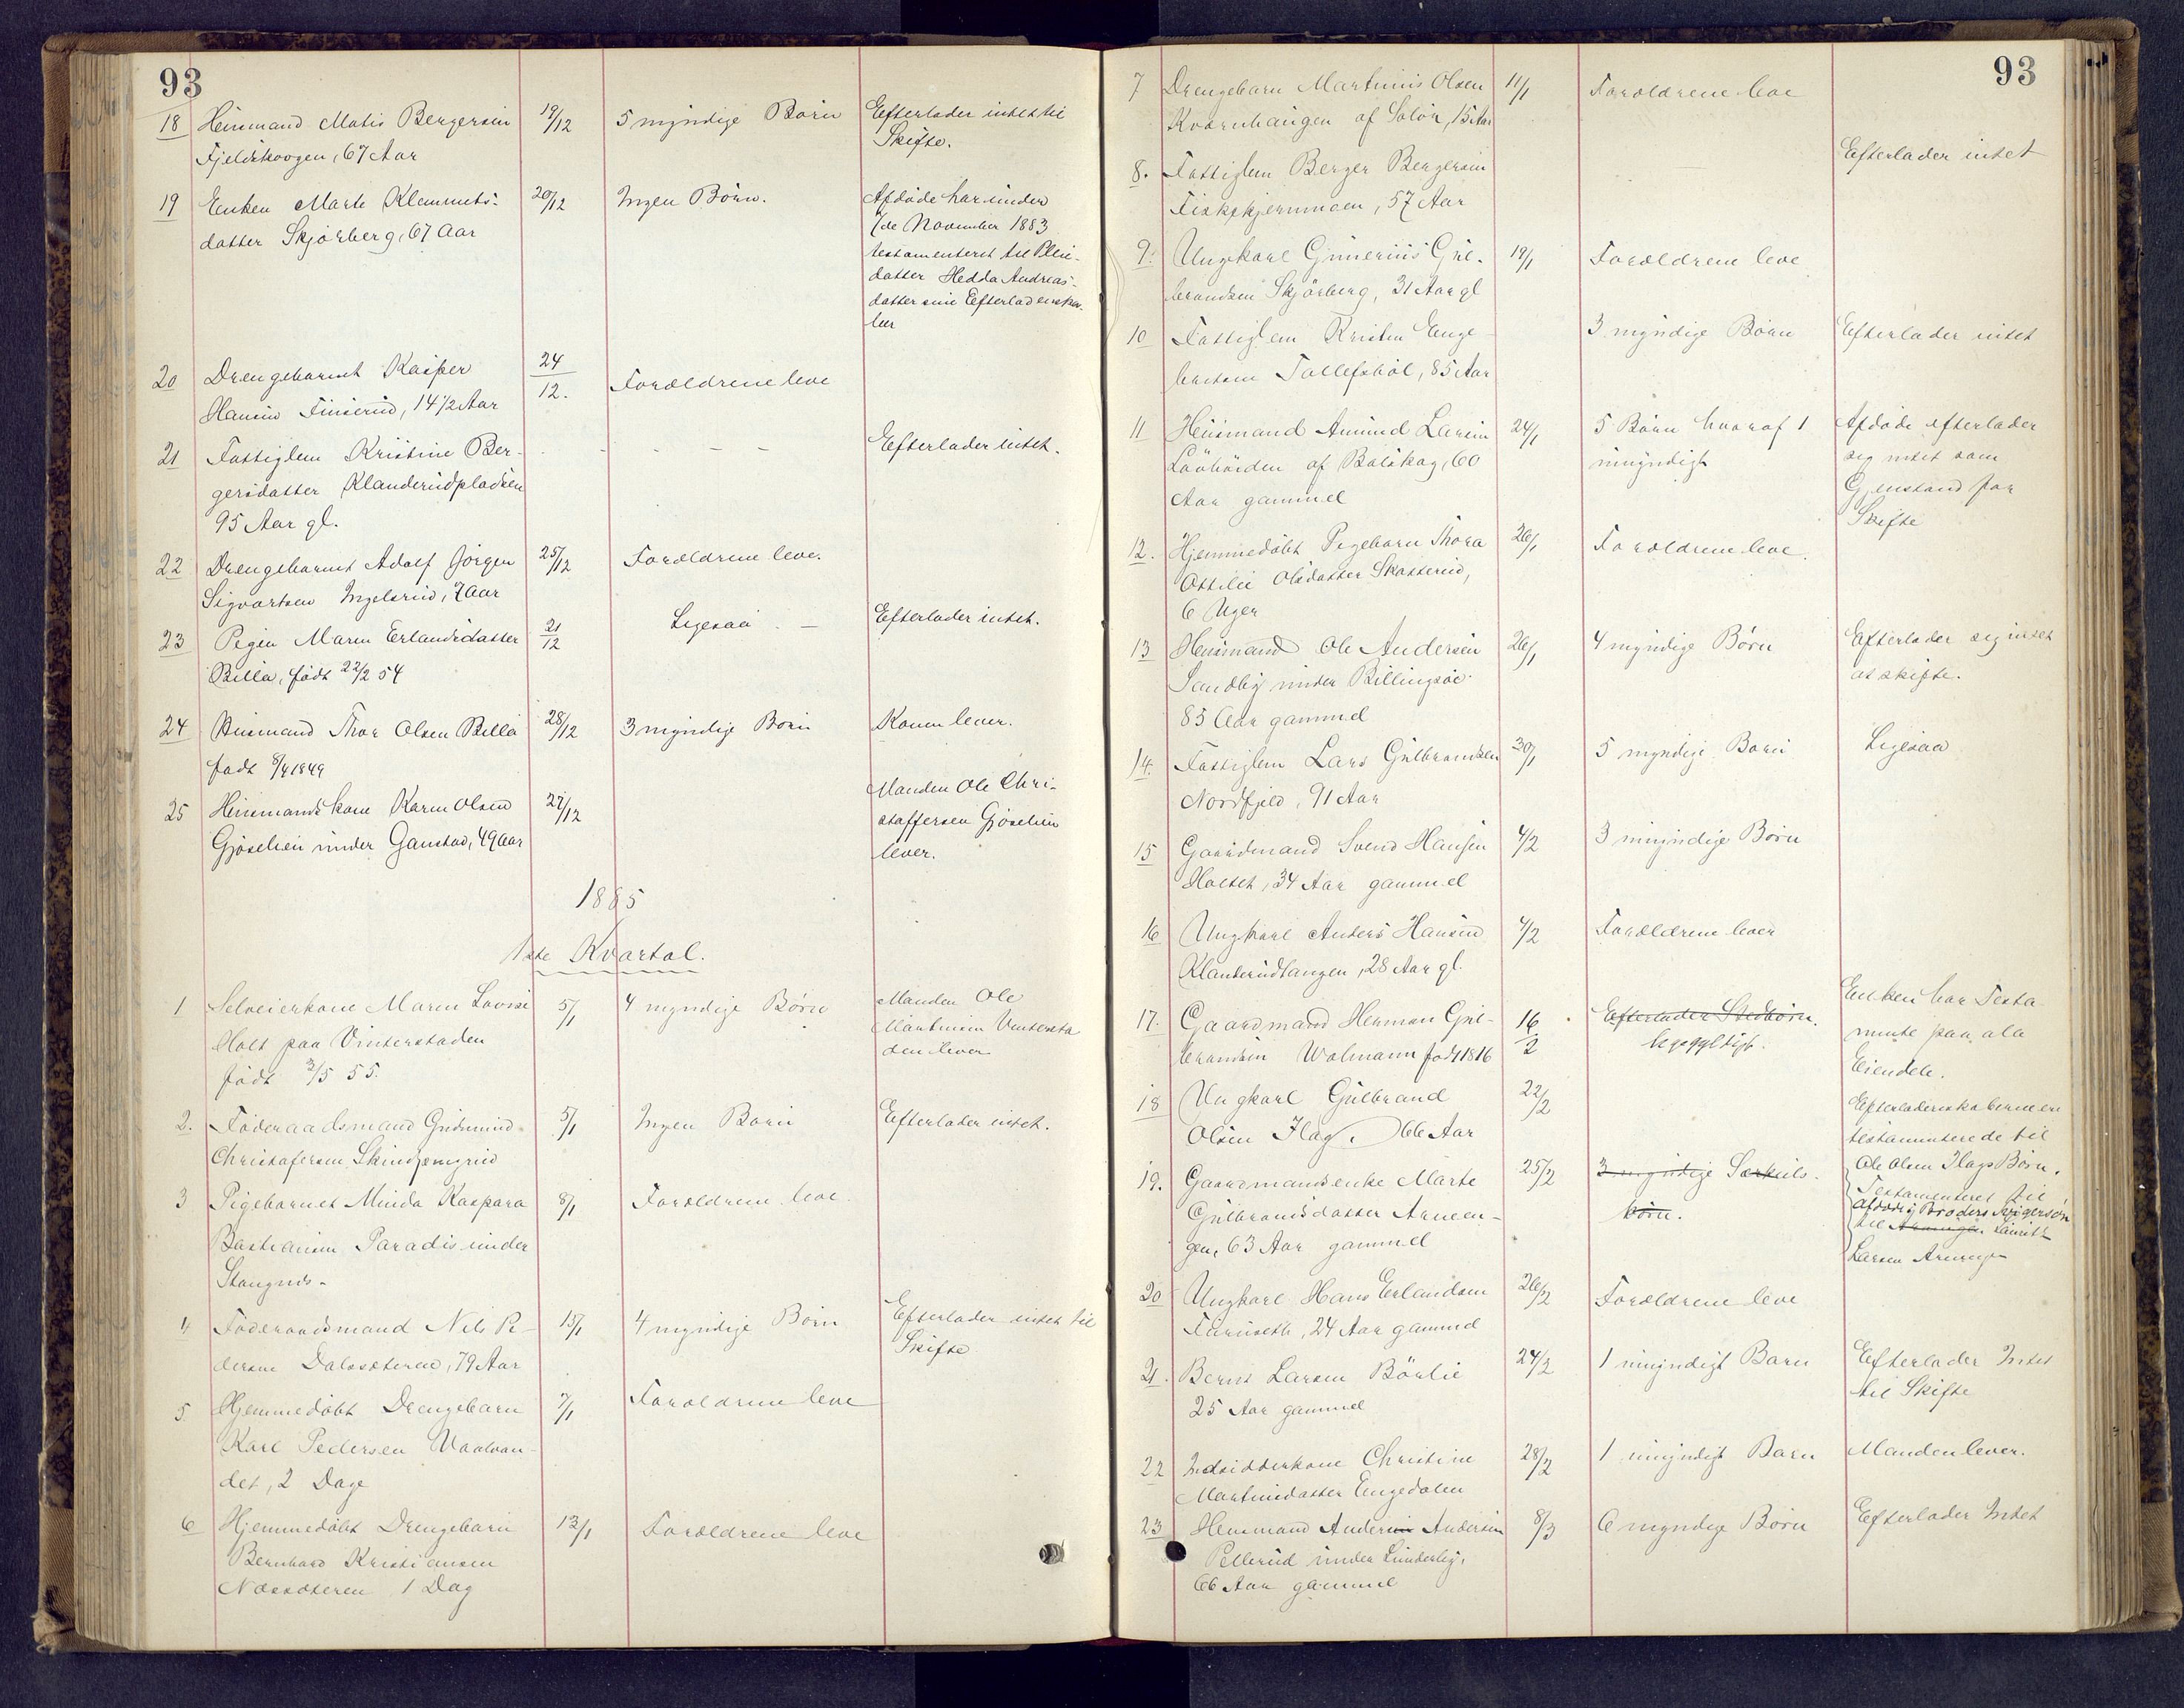 93
18 Heusmand Matis Bergersen 19/12 5 myndige Børn Efterlader intet til
Fjeldskoogen, 67 Aar Skifte.
19 Enken Marte Klemmets- 20/12 Ingen Børn. Afdøde har under
datter Skjørberg, 67 Aar 7de November 1883
testamenteret til Plei-
datter Hedda Andreas-
datter sine Efterladenska-
ber
20 Drengebarnet Kasper 24/12. Forældrene leve
Hansen Finserud, 14 1/2 Aar
21 Fattiglem Kristine Ber- - - - Efterlader intet.
gersdatter Klanderudpladsen
95 Aar gl.
22 Drengebarnet Adolf Jørgen 25/12 Forældrene leve.
Sigvartsen Ingelsrud, 7 Aar
23 Pigen Maren Erlandsdatter 21/12 Ligesaa - Efterlader intet.
Billa, født 22/2 54
24 Husmand Thor Olsen Billa 28/12 3 myndige Børn Konen lever.
født 8/4 1849
25 Heusmands kone Karen Olsen 27/12 Manden Ole Chri-
Gjøselien under Gaustad, 49 Aar stoffersen Gjøselien
lever.
1885
1ste Kvartal.
1 Selveierkone Maren Lovise 5/1 4 myndige Børn Manden Ole
Holt paa Vinterstaden Martinsen Vintersta
født 3/5 55. den lever
2. Føderaadsmand Gudmund 5/1 Ingen Børn Efterlader intet.
Christofersen
3 Pigebarnet Minda Kaspara 8/1 Forældrene leve.
Bastiansen Paradis under
Stangnes-
4 Føderaadsmand Nils Pe- 15/1 4 myndige Børn Efterlader intet til
dersen Dalssæteren, 79 Aar Skifte
5 Hjemmedøbt Drengebarn 7/1 Forældrene leve
Karl Pedersen Vaalvan-
det, 2 Dage
6 Hjemmedøbt Drengebarn 13/1 Forældrene leve
Bernhard Kristiansen
Næssæteren 1 Dag
93
7 Drengebarn Martinius Olsen 11/1 Forældrene leve
Kværnhaugen af Solør, 15 Aar
8. Fattiglem Berger Bergersen Efterlader intet
Fiskekjernmoen, 57 Aar
9. Ungkarl Gunerius Gul- 19/1 Forældrene leve
brandsen Skjørberg, 31 Aar gl
10 Fattiglem Kristen Enge- 3 myndige Børn Efterlader intet
bretsen Tollefsbøl, 85 Aar
11 Heusmand Amund Larsen 24/1 5 Børn hvoraf 1 Afdøde efterlader
Løvhøiden af Balskog, 60 umyndigt sig intet som
Aar gammel Gjenstand for
Skifte
12. Hjemmedøbt Pigebarn Thora 26/1 Forældrene leve.
Ottilie Olsdatter Skasserud,
6 Uger
13 Heusmand Ole Andersen 26/1 4 myndige Børn Efterlader sig intet
Sandby under Billingsøe at skifte.
85 Aar gammel
14. Fattiglem Lars Gulbrandsen 30/1 5 myndige Børn Ligesaa
Nordfjeld, 91 Aar
15 Gaardmand Svend Hansen 4/2 3 umyndige Børn
Holset, 34 Aar gammel
16 Ungkarl Anders Hansen 4/2 Forældrene lever
Klanderudtangen, 28 Aar gl.
17. Gaardmand Herman Gul- 16/2 Efterlader Stedbørn. Enken har Testa-
brandsen Wolmann født 1816 mente paa alle
Eiendele.
18 Ungkarl Gulbrand 22/2 Efterladenskaberne ere
Olsen Flag. 66 Aar testamenterede til
Ole Olsen Flags Børn.
19. Gaardmandsenke Marte 25/2 3 myndige Særkuls- Testamenteret til
Gulbrandsdatter Arneen- børn. afdødes Broders
gen, 63 Aar gammel til Laurits
Larsen Arneengen
20 Ungkarl Hans Erlandsen 26/2 Forældrene leve
Furuseth, 24 Aar gammel
21. Bernt Larsen Børlie 24/2 1 umyndigt Barn Efterlader Intet
25 Aar gammel til Skifte
22 Indsidderkone Christine 28/2 1 umyndigt Barn Manden lever.
Martinsdatter Engedalen
23 Heusmand Andersen Andersen 8/3 6 myndige Børn Efterlader Intet
Pellerud under Lunderby,
66 Aar gammel